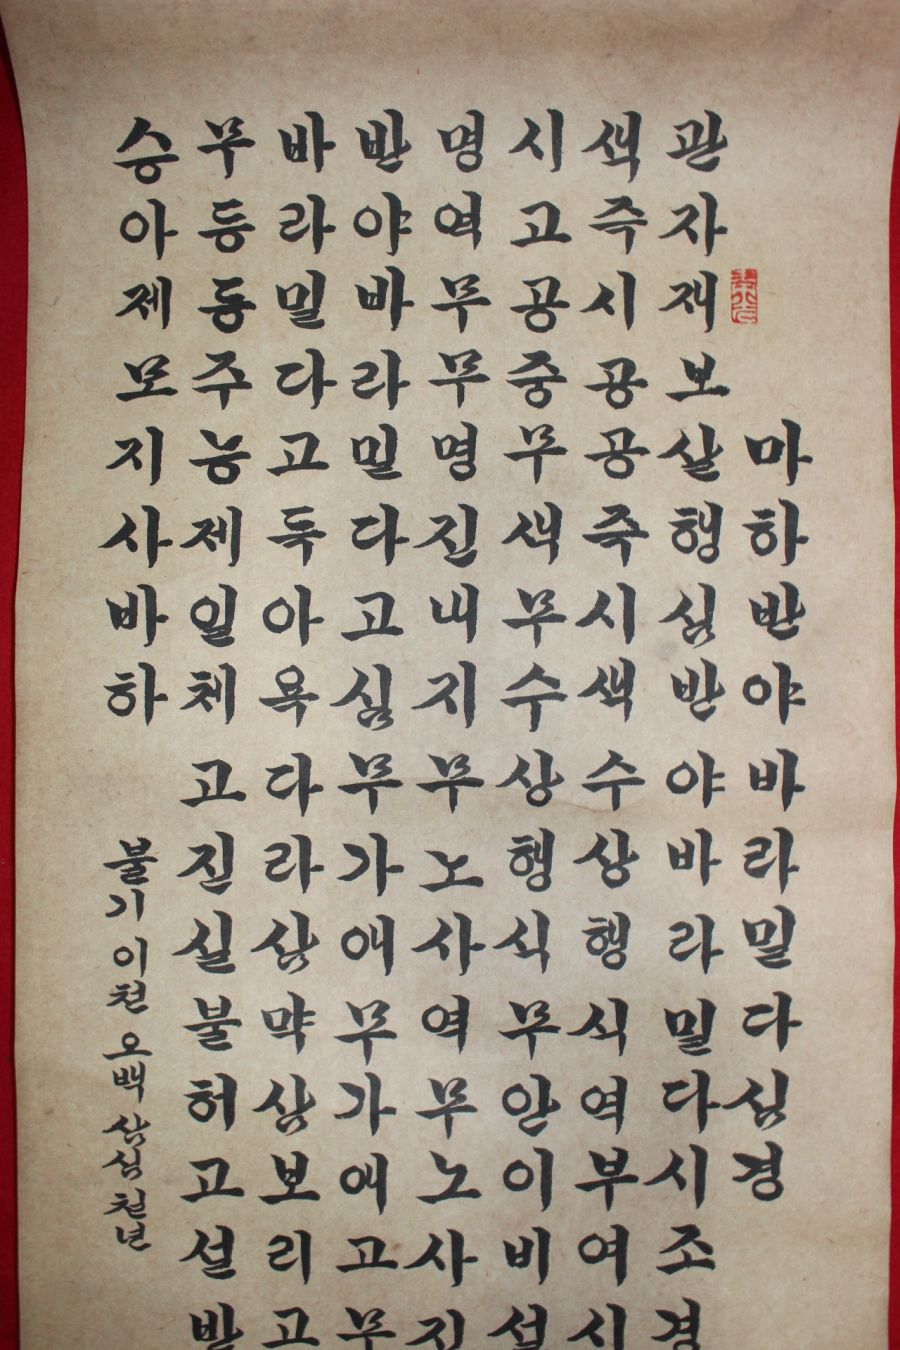 마하반야바라밀다심경
관자재보살행심반야바라밀다시조
색즉시공공즉시색수상행식역부여시
시고공중무색무수상행식무안이비설
명역무무명진내지무노사역무노사진
반야바라밀다고심무가애무가애고무
바라밀다고득아욕다라삼먁삼보리고
무등등주능제일체고진실불허고설반
승아제모지사바하
불기 이천 오백 삼심 천년